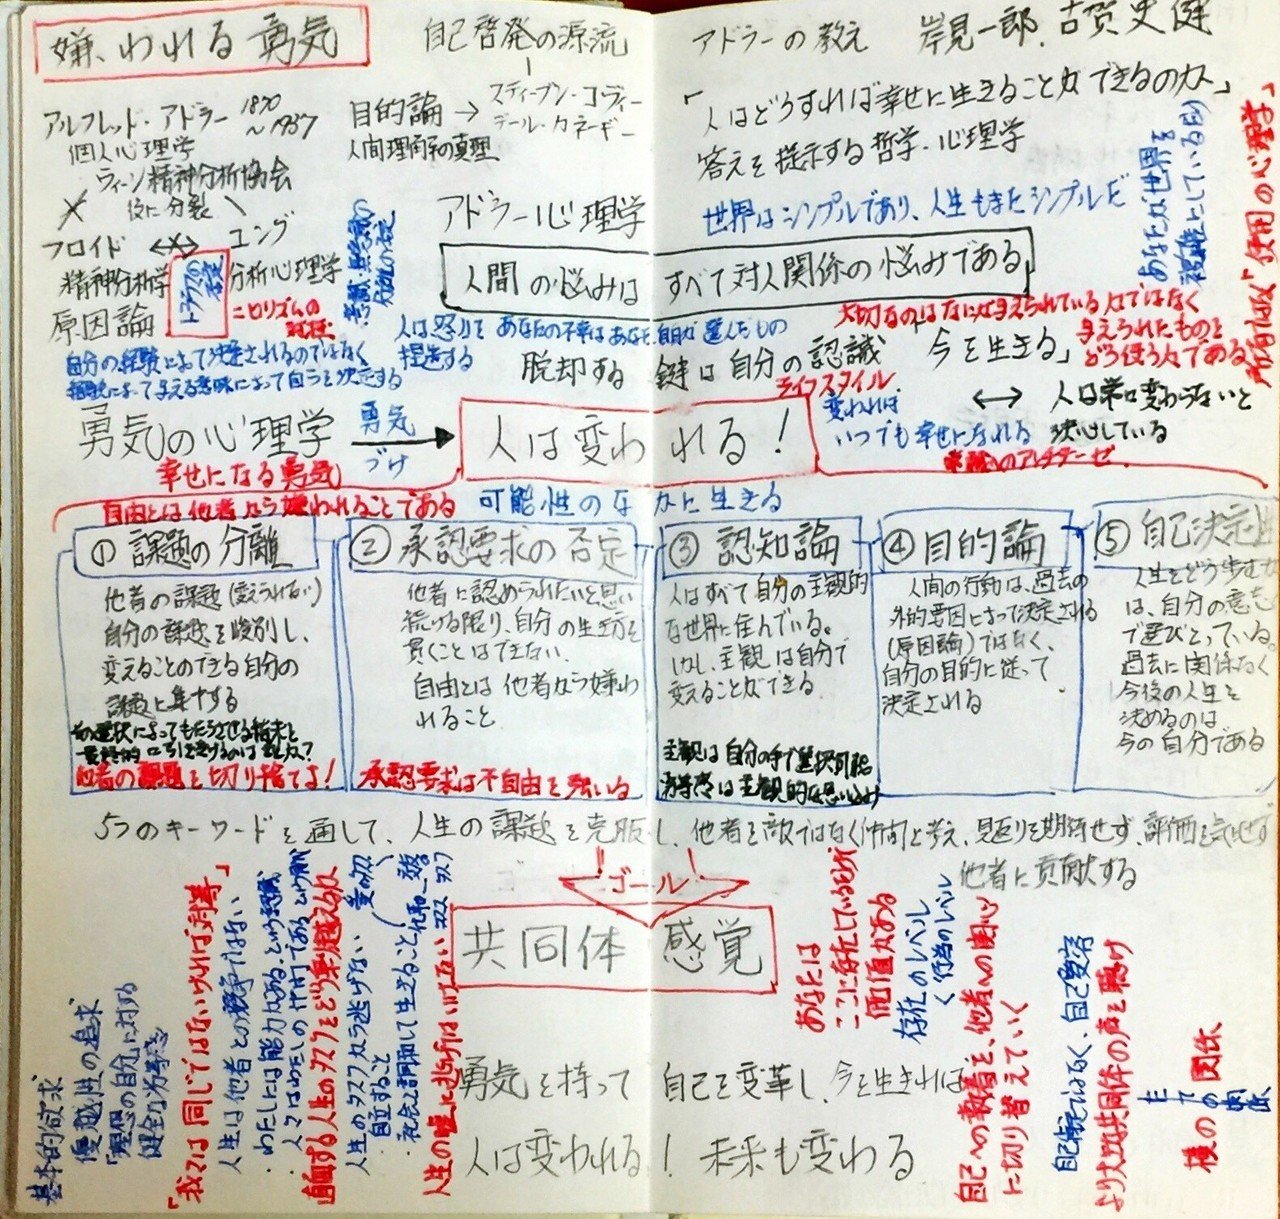 嫌われる勇気
自己啓発の源流
アドラーの教え 岸見一郎、古賀史健
アルフレッド・アドラー 1870～1937
個人心理学
ウィーン精神分析協会
後に分裂
フロイド
ユング
精神分析学
分析心理学
トラウマの否定
原因論
ニヒリズムの
目的論 → スティーブン・コヴィー
デール・カネーギー
人間理解の真理
「人はどうすれば幸せに生きることができるのか」
答えを提示する哲学・心理学
アドラー心理学
世界はシンプルであり、人生もまたシンプルだ
人間の悩みはすべて対人関係の悩みである
あなたが世界を
複雑としている(主観)
所有ではなく「使用の心理学」
自分の経験によって決定されるのではなく
経験によって与える意味によって自らを決定する
人は怒りを
捏造する
あなたの不幸はあなた自身が選んだもの
脱却する 鍵は自分の認識
ライフスタイル
「今を生きる」
大切なのはなにが与えられているかではなく
与えられたものを
どう使うかである
勇気の心理学
勇気づけ
幸せになる勇気
人は変われる！
変われば
いつでも幸せになれる
人は常に変わらないと
決心している
自由とは他者から嫌われることである
可能性のなかに生きる
① 課題の分離
他者の課題(変えられない)
自分の課題を峻別し、
変えることのできる自分の
課題に集中する
その選択によってもたらされる結末を
最終的に引き受けるのは誰か？
他者の課題を切り捨てよ！
② 承認要求の否定
他者に認められたいと思い
続ける限り、自分の生き方を
貫くことはできない
自由とは他者から嫌わ
れること
承認要求は不自由を強いる
③ 認知論
人はすべて自分の主観的
な世界に住んでいる。
しかし、主観は自分で
変えることができる
主観は自分の手で選択可能
劣等感は主観的な思い込み
④ 目的論
人間の行動は、過去の
外的要因によって決定される
(原因論)ではなく、
自分の目的に従って
決定される
⑤ 自己決定
人生をどう歩むか
は、自分の意志
で選びとっている。
過去に関係なく
今後の人生を
決めるのは
今の自分である
5つのキーワードを通して、人生の課題を克服し、他者を敵ではなく仲間と考え、見返りを期待せず、評価を気にせず
他者に貢献する
ゴール
共同体感覚
勇気を持って 自己を変革し、今を生きれば
人は変われる！ 未来も変わる
基本的欲求
優越性の追求
「理想の自分」に対する
健全な劣等感
「我々は同じではないけれど対等」
人生は他者との競争ではない
・わたしには能力がある という意識
・人々はわたしの仲間である という意識
直面する人生のタスクをどう乗り越えるか
人生のタスクから逃げない
・自立すること
・社会と調和して生きること
人生の嘘に逃げてはいけない
あなたは
ここに存在しているだけで
価値がある
存在のレベル
行為のレベル
自己への執着を、他者への関心
に切り替えていく
自己肯定ではなく、自己受容
より大きな共同体の声を聴け
たての関係
横の関係